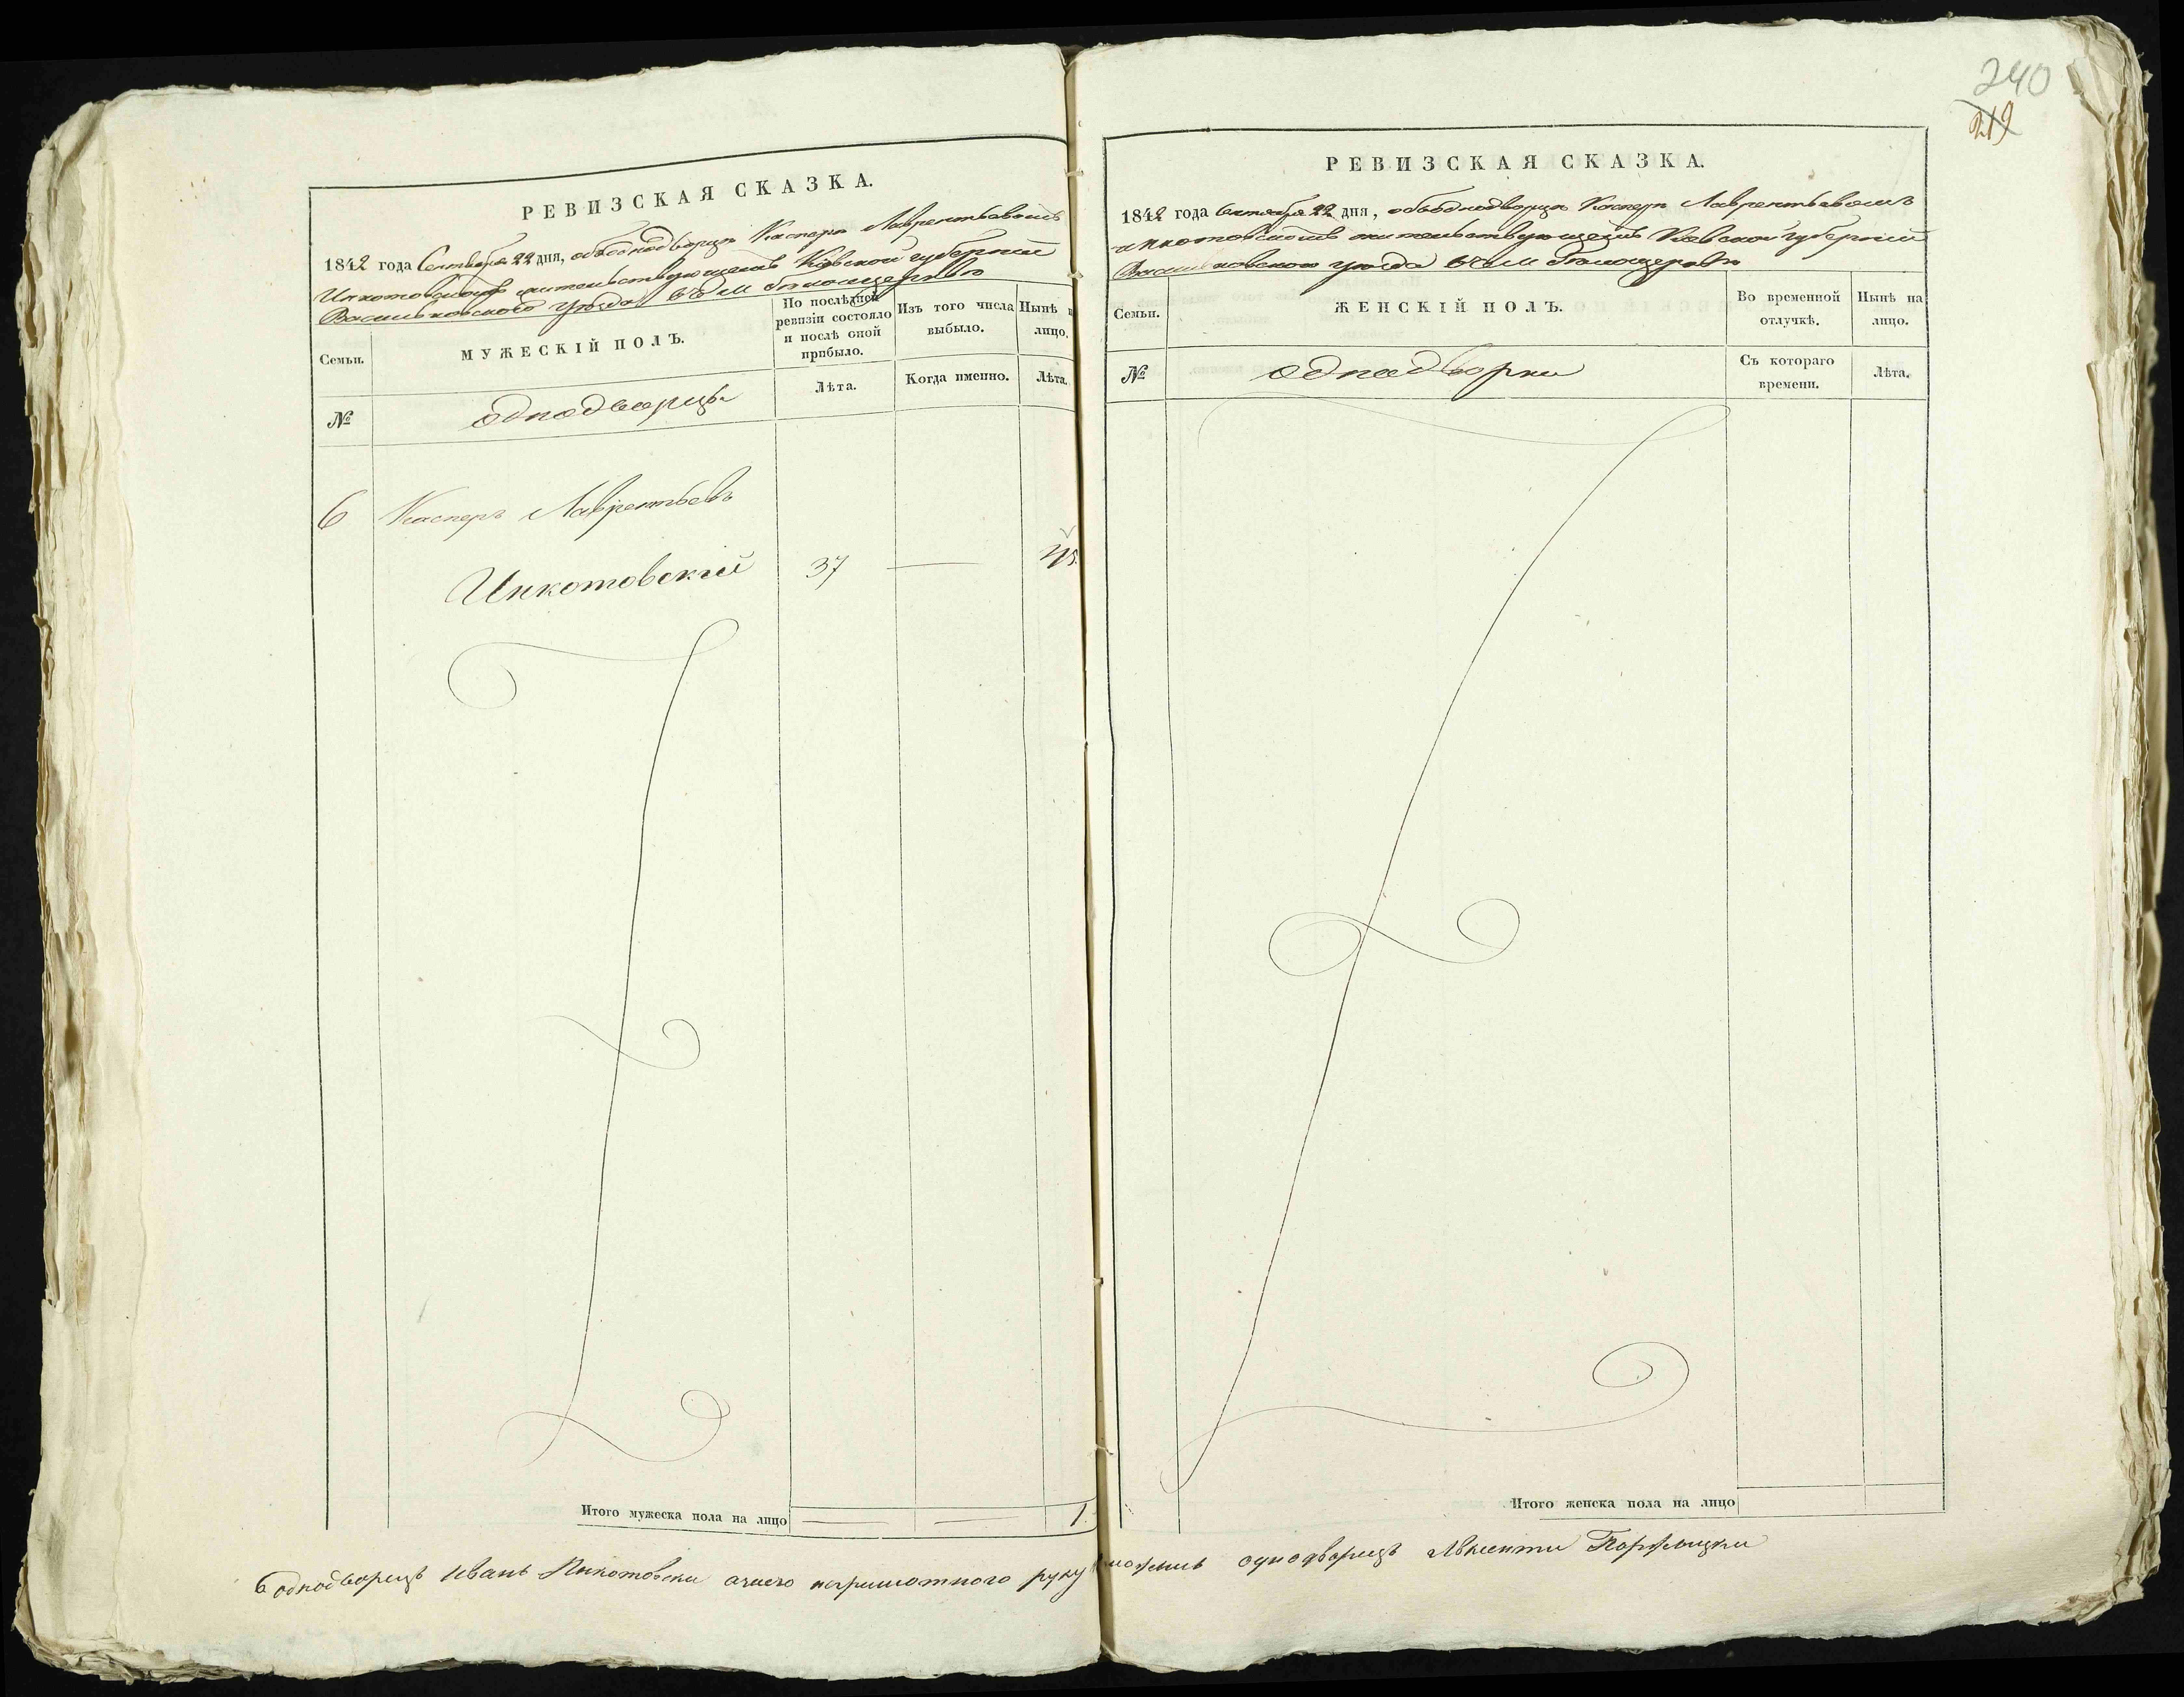 240
219
РЕВИЗСКАЯ СКАЗКА.
1842 года Сентября 22 дня, объ однодворцѣ Касперѣ Лаврентьевомъ
Инкотовскомъ жительствующемъ Кіевской губерніи
Васильковскаго уѣзда въ м Бѣлоцерквѣ
Семьи.
МУЖЕСКІЙ ПОЛЪ.
По послѣдней ревизіи состояло и послѣ оной прибыло.
Изъ того числа выбыло.
Нынѣ н лицо.
№
однодворцы
Лѣта.
Когда именно.
Лѣта.
6 Касперъ Лаврентьевъ
Инкотовскій 37 — 45.
Итого мужеска пола на лицо — — 1.
РЕВИЗСКАЯ СКАЗКА.
1842 года Сентября 22 дня, объ однодворцѣ Касперѣ Лаврентьевомъ
инкотовскомъ жительствующемъ Кіевской губерніи
Васильковского уѣзда въ м Бѣлоцерквѣ
Семьи.
ЖЕНСКІЙ ПОЛЪ.
Во временной отлучкѣ.
Нынѣ на лицо.
№
однодворки
Съ котораго времени.
Лѣта.
Итого женска пола на лицо
однодворецъ Иванъ Инкотовски неграмотного руку однодворецъ